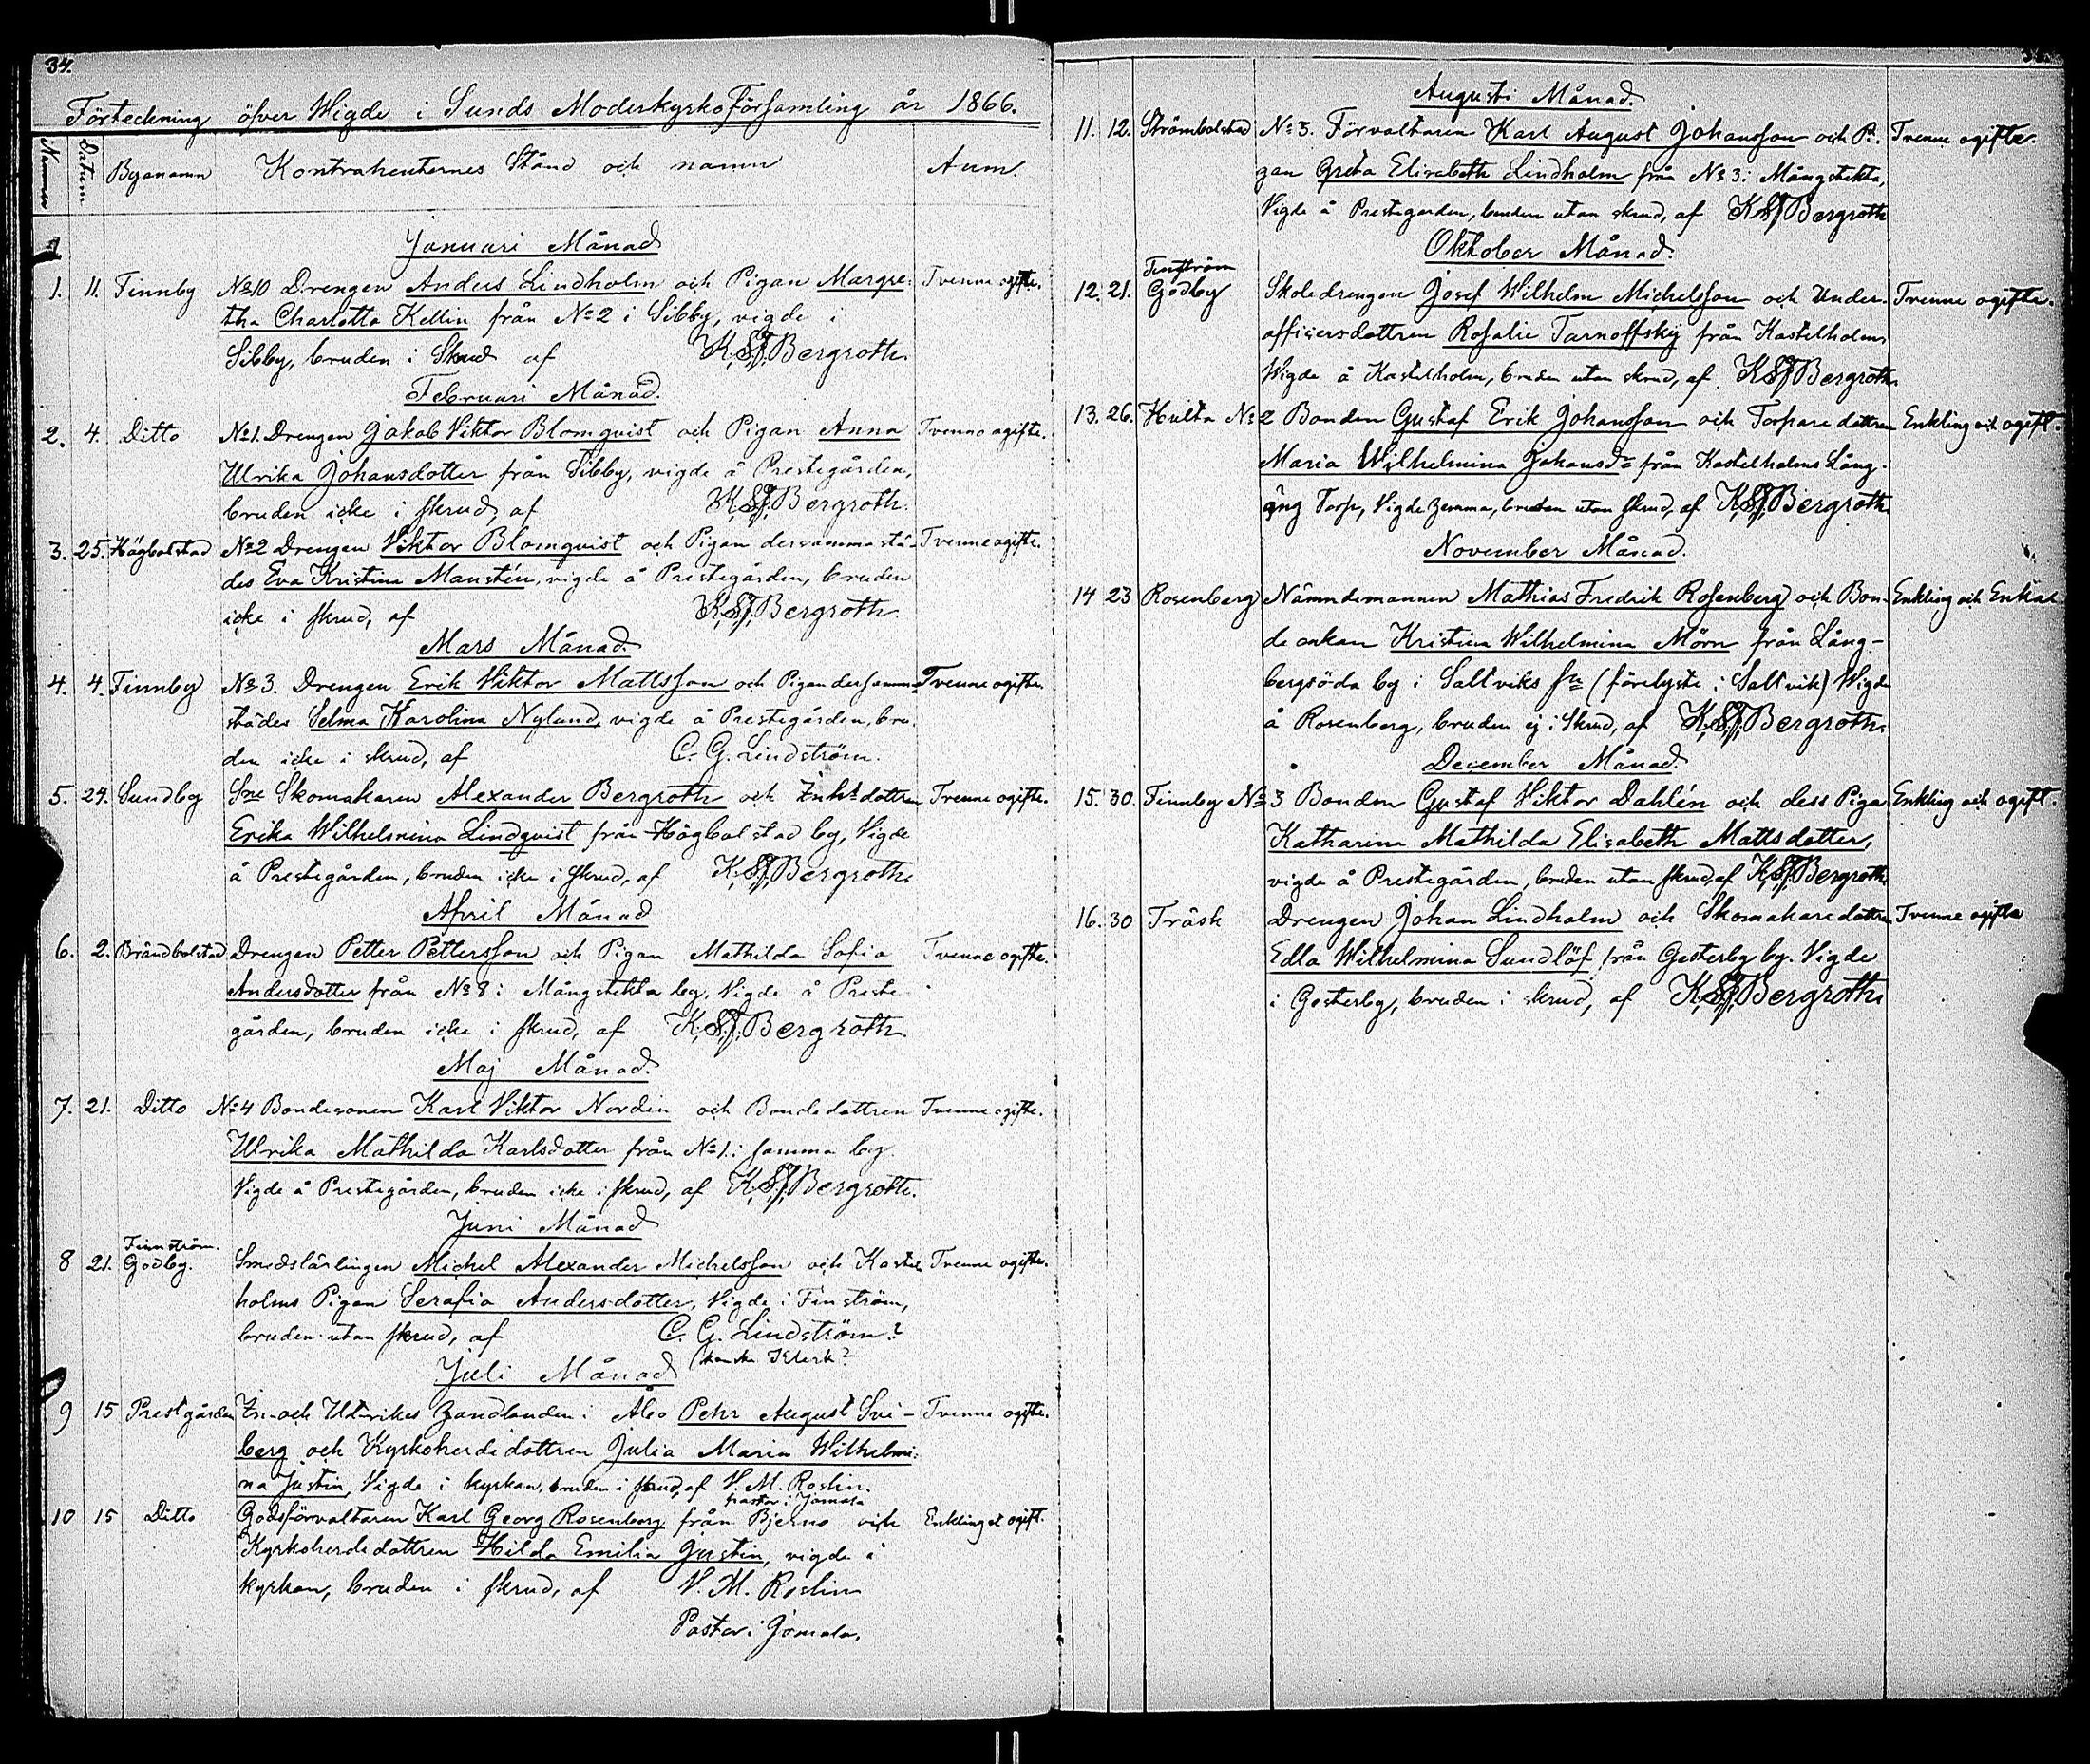 34.
Förteckning öfver Wigde i Sunds Moderkyrkoförsamling år 1866.
Nummer Datum Byanamn Kontrahenternes Stånd och namn Anm.
Januari Månad
1. 11. Finnby No 10 Drengen Anders Lindholm och Pigan Margre: Tvenne ogifte.
tha Charlotta Kellin från No 2 i Sibby, vigde i
Sibby, bruden i Skrud af K.S.J. Bergroth.
Februari Månad.
2. 4. Ditto No 1. Drengen Jakob Viktor Blomqvist och Pigan Anna Tvenne ogifte.
Ulrika Johansdotter från Sibby, vigde å Prestegården,
bruden icke i skrud, af K.S.J. Bergroth.
3. 25. Högbolstad No 2 Drengen Viktor Blomqvist och Pigan dersammastä- Tvenne ogifte.
des Eva Kristina Manstén, vigde å Prestegården, bruden
icke i skrud, af K.S.J. Bergroth.
Mars Månad.
4. 4. Finnby No 3. Drengen Erik Viktor Mattsson och Pigan dersamma- Tvenne ogifte.
städes Selma Karolina Nylund, vigde å Prestegården, bru-
den icke i skrud, af C. G. Lindström.
5. 24. Sundby Sne Skomakaren Alexander Bergroth och Inhs dottren Tvenne ogifte.
Erika Wilhelmina Lindqvist från Högbolstad by, Vigde
å Prestegården, bruden icke i skrud, af K.S.J. Bergroth.
April Månad
6. 2. Brändbolstad Drengen Petter Pettersson och Pigan Mathilda Sofia Tvenne ogifte.
Andersdotter från No 8 i Mångstekta by, Vigde å Preste-
gården, bruden icke i skrud, af K.S.J. Bergroth.
Maj Månad.
7. 21. Ditto No 4 Bondesonen Karl Viktor Nordin och Bondedottren Tvenne ogifte.
Ulrika Mathilda Karlsdotter från No 1. i samma by.
Vigde å Prestegården, bruden icke i skrud, af K.S.J. Bergroth.
Juni Månad
Finnström.
8 21. Godby. Smedslärlingen Michel Alexander Michelsson och Kastel Tvenne ogifte.
holms Pigan Serafia Andersdotter, Vigde i Finström,
bruden utan skrud, af C. G. Lindström?
(kanske Klerk?
Juli Månad
9 15 Prestgården In- och Utrikes Handlanden i Åbo Pehr August Svi- Tvenne ogifte.
berg och Kyrkoherdedottren Julia Maria Wilhelmi:
na Justin, Vigde i kyrkan, bruden i skrud, af V. M. Roslin.
pastor i Jomala
10 15 Ditto Godsförvaltaren Karl Georg Rosenberg från Bjerno och Enkling o ogift.
Kyrkoherdedottren Hilda Emilia Justin, vigde i
kyrkan, bruden i skrud, af V. M. Roslin
Pastor i Jomala.
Augusti Månad.
11. 12. Strömbolstad No 3. Förvaltaren Karl August Johansson och Pi- Tvenne ogifte.
gan Greta Elisabeth Lindholm från No 3 i Mångstekta,
Vigde å Prestegården, bruden utan skrud, af K.S.J. Bergroth
Oktober Månad.
Finström
12. 21. Godby Skoledrengen Josef Wilhelm Michelsson och Under- Tvenne ogifte.
officersdottren Rosalie Tarnoffsky från Kastelholm,
Wigde å Kastelholm, bruden utan skrud, af K.S.J. Bergroth
13. 26. Hulta No 2 Bonden Gustaf Erik Johansson och Torparedottren Enkling och ogift.
Maria Wilhelmina Johansdr från Kastelholms Lång-
äng Torp, Vigde hemma, bruden utan skrud, af K.S.J. Bergroth
November Månad.
14 23 Rosenberg Nämndemannen Mathias Fredrik Rosenberg och Bon- Enkling och Enka
de enkan Kristina Wilhelmina Mörn från Lång-
bergsöda by i Saltviks sn (förelyste i Saltvik) Wigde
å Rosenberg, bruden ej i Skrud, af K.S.J. Bergroth.
December Månad.
15. 30. Finnby No 3 Bonden Gustaf Viktor Dahlén och dess Piga Enkling och ogift.
Katharina Mathilda Elisabeth Mattsdotter,
vigde å Prestegården, bruden utan skrud, af K.S.J. Bergroth
16. 30 Träsk Drengen Johan Lindholm och Skomakaredottren Tvenne ogifte
Edla Wilhelmina Sundlöf från Gesterby by. Vigde
i Gesterby, bruden i skrud, af K.S.J. Bergroth